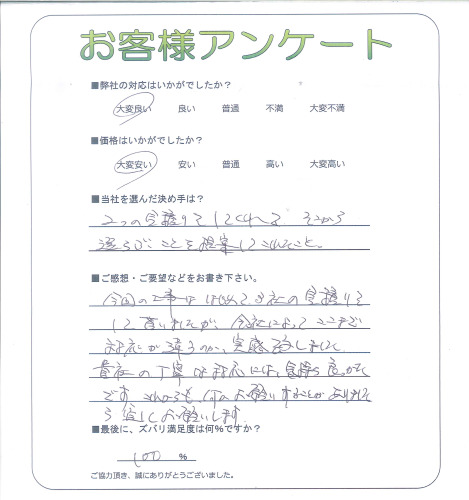 お客様アンケート
■弊社の対応はいかがでしたか?
大変良い 良い 普通 不満 大変不満
■価格はいかがでしたか?
大変安い 安い 普通 高い 大変高い
■当社を選んだ決め手は?
2つの見積りをしてくれる そこから
選らぶことを提案してくれたこと。
■ご感想・ご要望などをお書き下さい。
今回の工事ははじめて3社の見積りを
して貰いましたが、会社によってここまで
対応が違うのか、実感致しまして
貴社の丁寧な対応には、気持ち良かったです
これからも、何かお願いすることがありましたら
宜しくお願いします
■最後に、ズバリ満足度は何%ですか?
100 %
ご協力頂き、誠にありがとうございました。